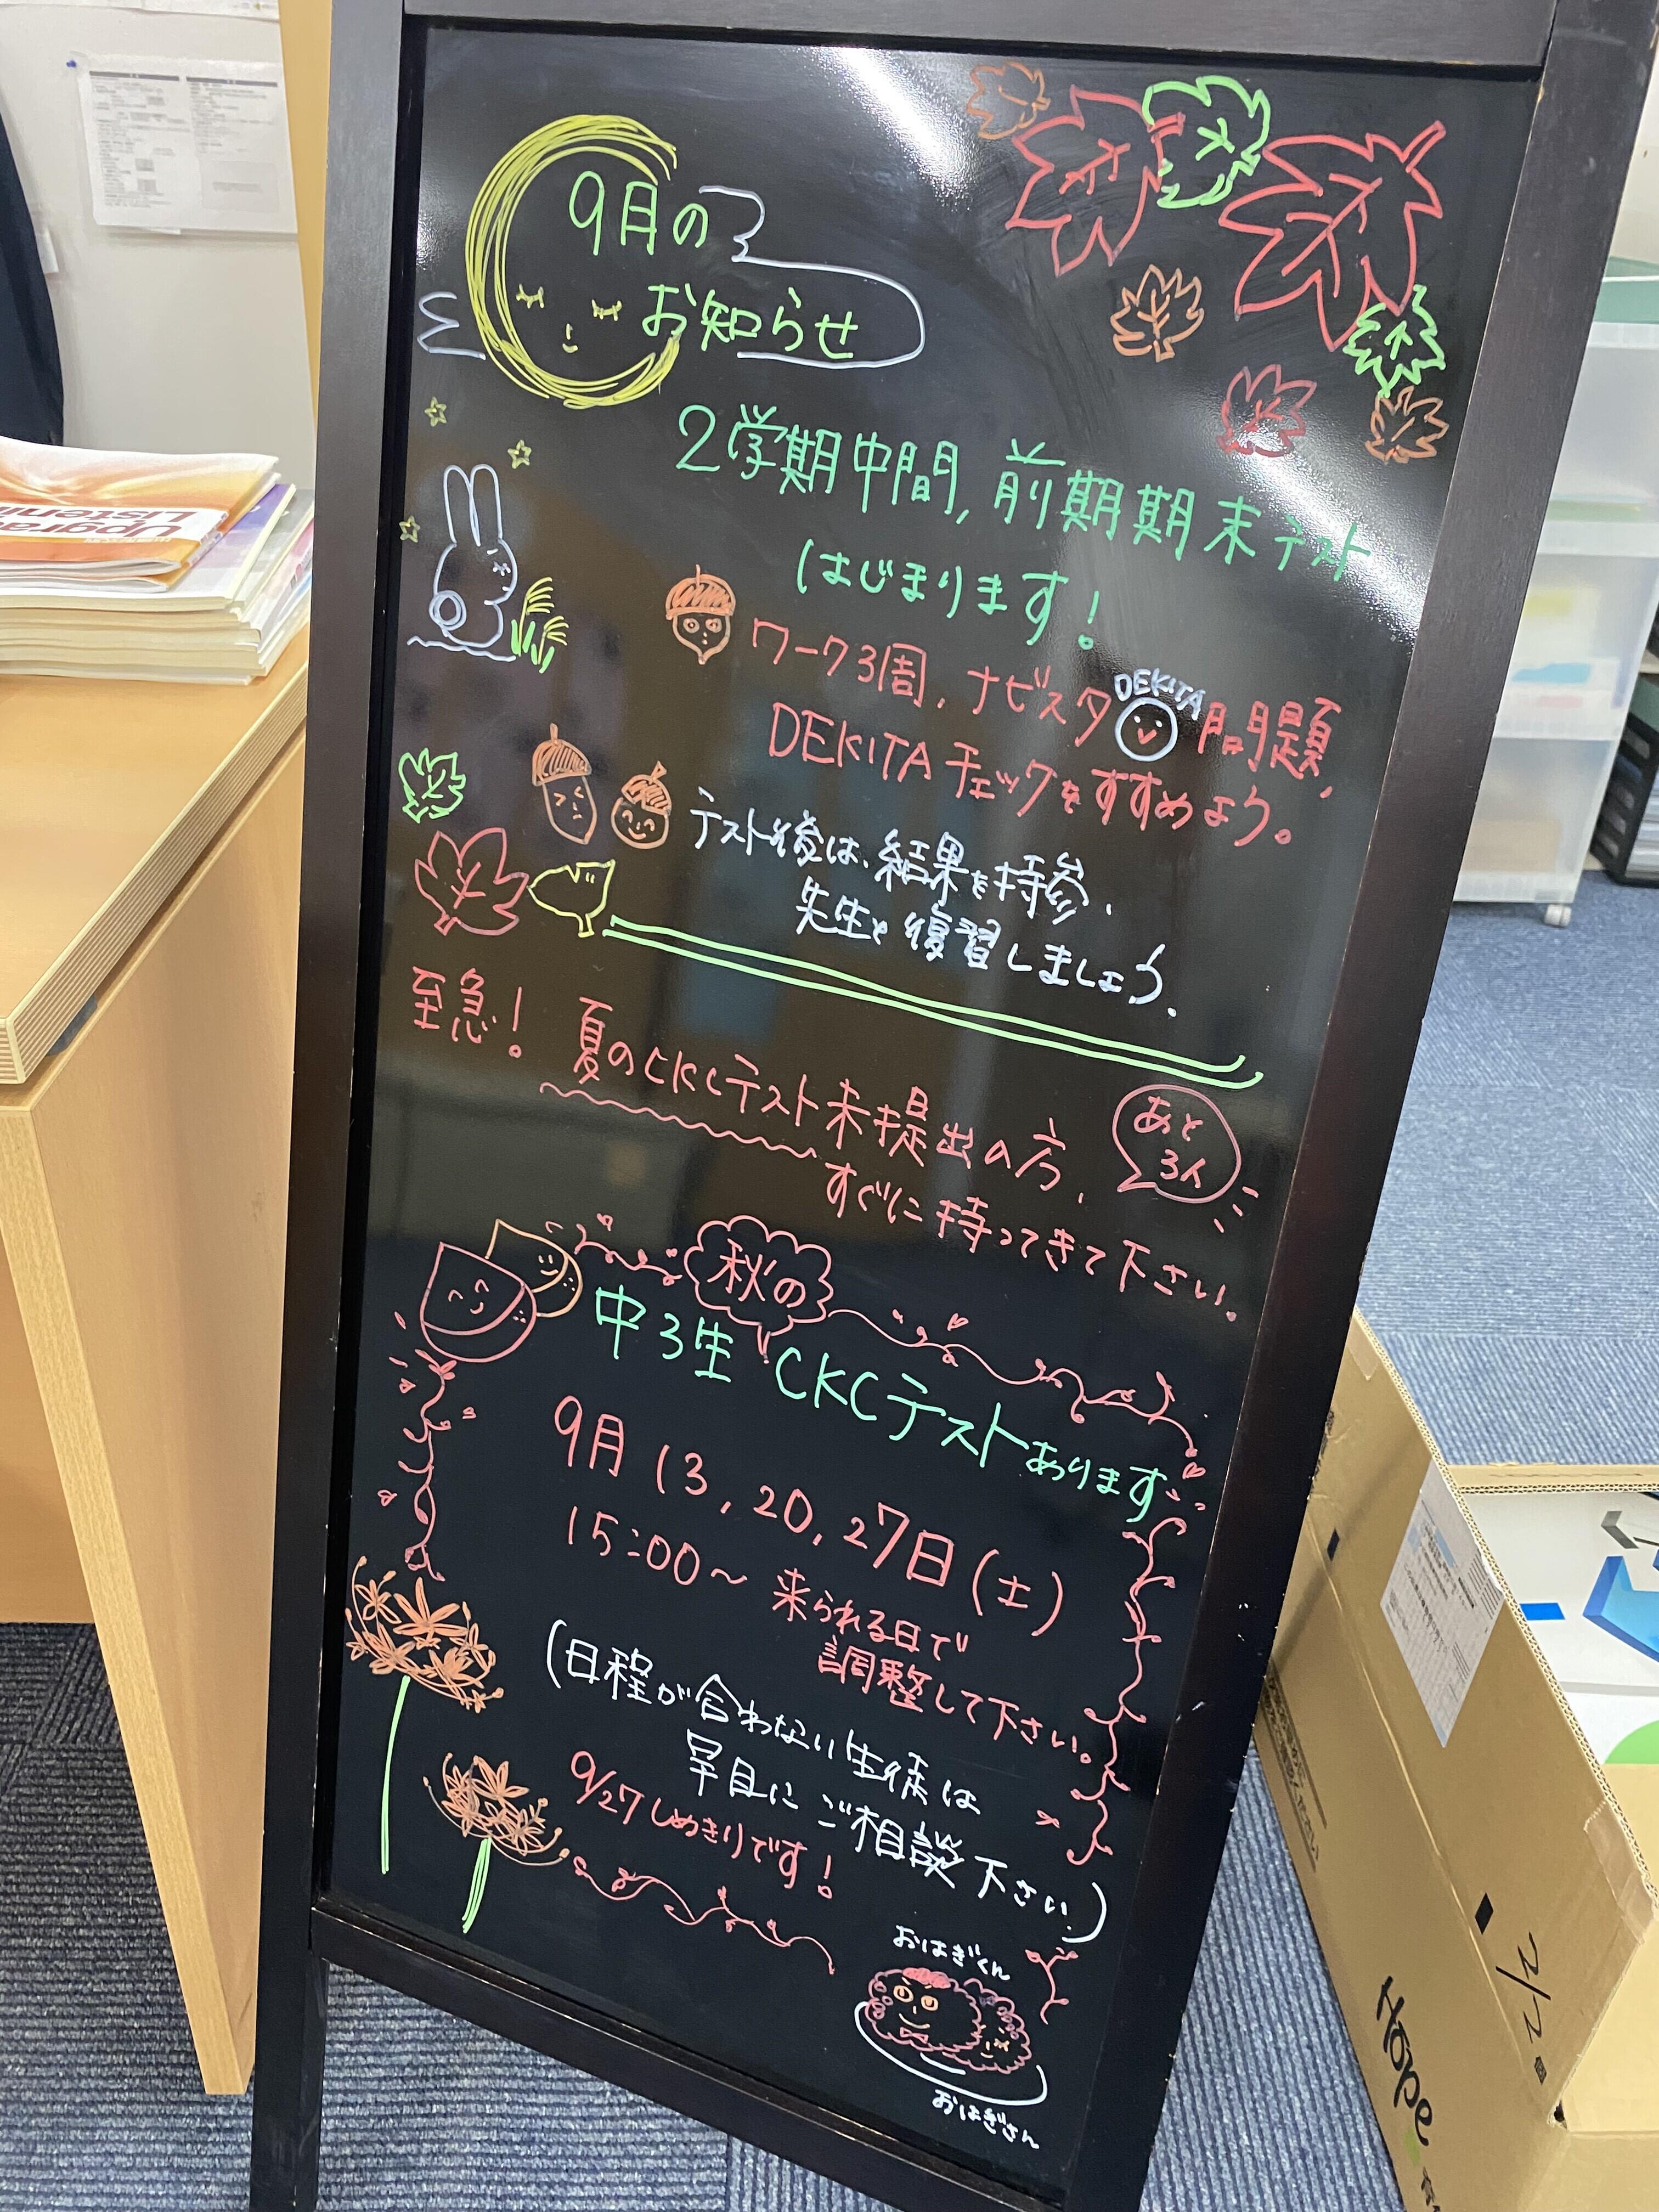 9月の
お知らせ
2学期中間,前期期末テスト
はじまります!
ワーク3周、ナビスタ DEKITA 問題、
DEKITAチェックをすすめよう。
テスト後は、結果を持参、
先生と復習しましょう。
至急! 夏のCKCテスト未提出の方、
あと
3人
すぐに持ってきて下さい。
秋の
中3生 CKCテストあります
9月13,20,27日(土)
15:00〜 来られる日で
調整して下さい。
(日程が合わない生徒は
早目にご相談下さい。)
9/27しめきりです!
おはぎくん
おはぎさん
Upgra
Listeni
Hope
2/2